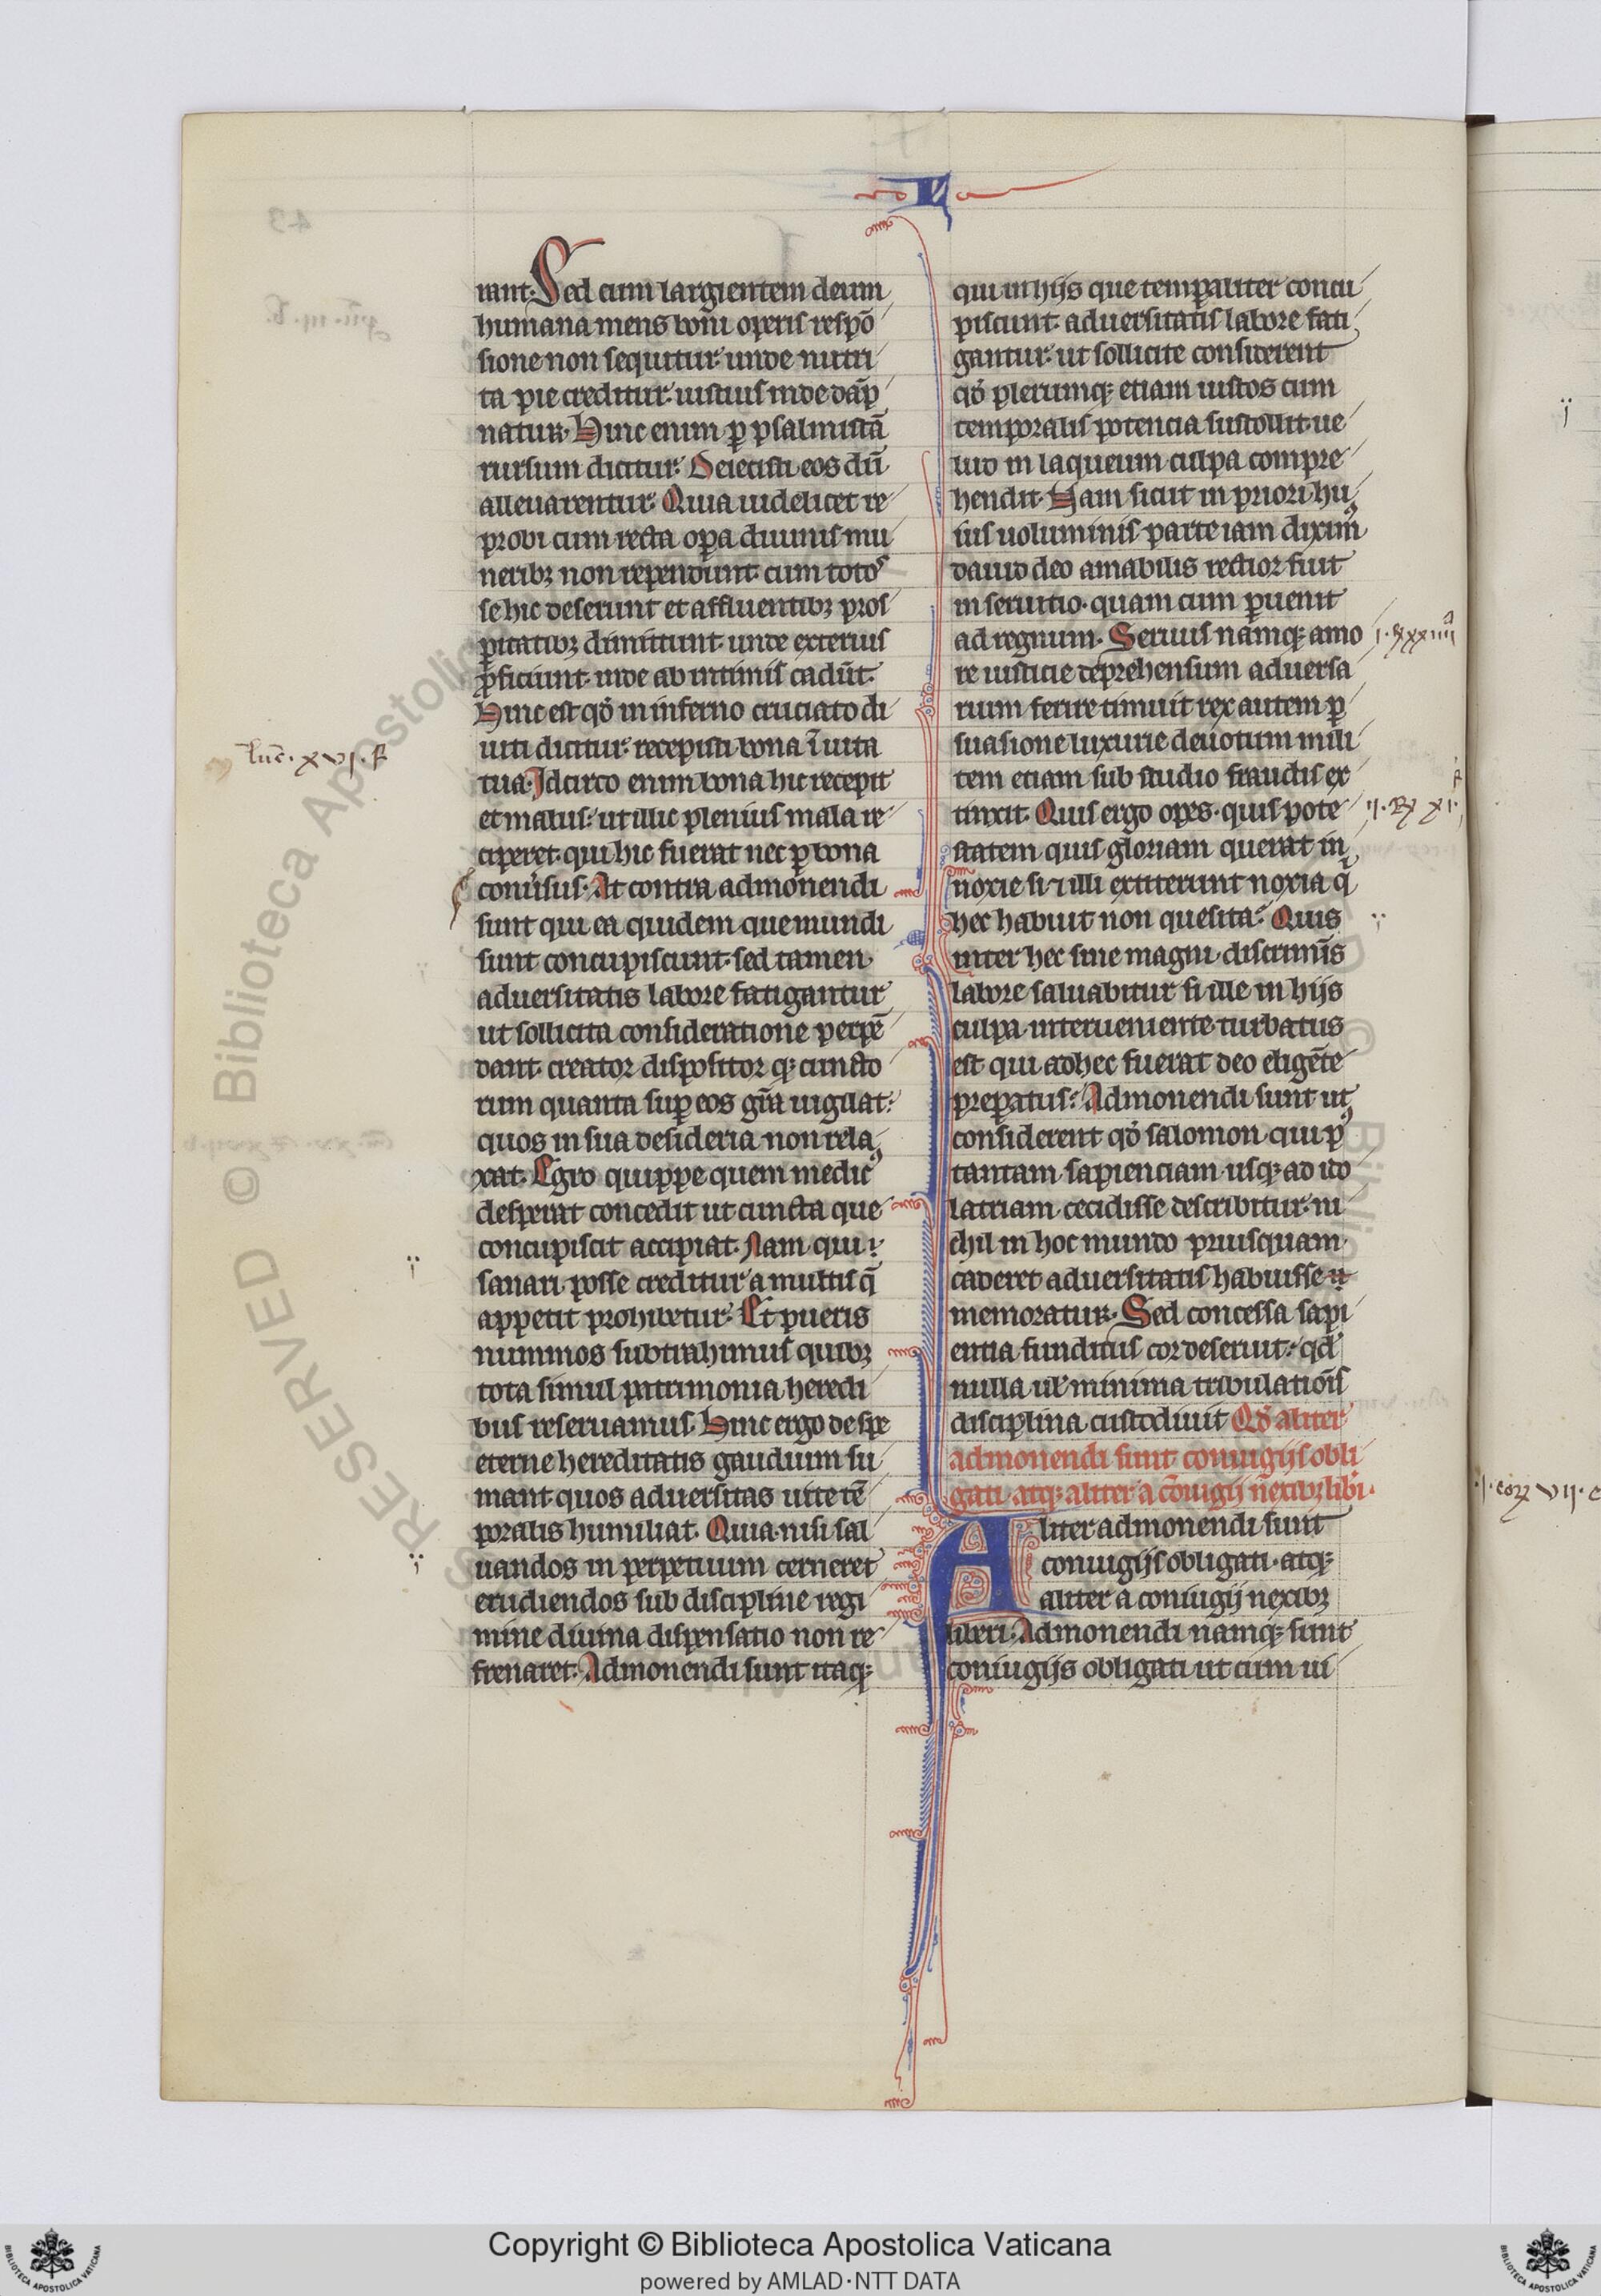 rant. Sed cum largientem deum
humana mens boni operis respō
sione non sequitur. unde nutri
ta pie creditur. iustius inde dāp
natur. Hinc enim ꝑ psalmistā
rursum dicitur. Deiecisti eos dū
alleuarentur. Quia uidelicet re
probi cum recta oꝑa diuinis mu
neribꝫ non rependunt. cum totoˢ
se hic deserunt et affluentibꝫ pros
ꝑitatibꝫ dimittunt. unde exterius
ꝓficiunt. inde ab intimis cadūt.
Hinc est qđ in inferno cruciato di
uiti dicitur. recepisti bona ī uita
tua. Idcirco enim bona hic recepit
et malus. ut illic plenius mala re
ciperet. qui hic fuerat nec ꝑ bona
conuʼsus. At contra admonendi
sunt qui ea quidem que mundi
sunt concupiscunt. sed tamen
aduersitatis labore fatigantur
ut sollicita consideratione perpē
dant. creator dispositor qꝫ cuncto
rum quanta suꝑ eos gr̄a uigilat.
quos in sua desideria non rela
xat. Egro quippe quem medicꝰ
desperat concedit ut cuncta que
concupiscit accipiat. Nam qui
sanari posse creditur a multis q̄
appetit prohibetur. Et pueris
nummos subtrahimus quibꝫ
tota simul patrimonia heredi
bus reseruamus. Hinc ergo de spe
eterne hereditatis gaudium su
mant. quos aduersitas uite tē
poralis humiliat. Quia nisi sal
uandos in perpetuum cerneret
erudiendos sub discipline regi
mine diuina dispensatio non re
frenaret. Admonendi sunt itaqꝫ
qui in hijs que temꝑaliter concu
piscunt. aduersitatis labore fati
gantur. ut sollicite considerent
qđ plerumqꝫ etiam iustos cum
temporalis potencia sustollit. ue
lud in laqueum culpa compre
hendit. Nam sicut in priori hu
ius uoluminis parte iam diximꝰ
dauid deo amabilis rectior fuit
in seruitio. quam cum ꝑuenit
ad regnum. Seruus namqꝫ amo
re iusticie deprehensum aduersa
rium ferire timuit. rex autem ꝑ
suasione luxurie deuotum mili
tem etiam sub studio fraudis ex
tinxit. Quis ergo opes. quis pote
statem quis gloriam querat in
noxie si ⁊ illi extiterunt noxia q̄
hec habuit non quesita. Quis
inter hec sine magni discrimīs
labore saluabitur si ille in hijs
culpa interueniente turbatus
est qui ad hec fuerat deo eligēte
preꝑatus. Admonendi sunt ut
considerent qđ salomon qui pꝰ
tantam sapienciam usqꝫ ad ido
latriam cecidisse describitur. ni
chil in hoc mundo priusquam
caderet aduersitatis habuisse
memoratur. Sed concessa sapi
entia funditus cor deseruit. qđ
nulla ul̓ minima tribulatiōis
disciplina custodiuit Qđ aliter
admonendi sunt coniugijs obli
gati. atqꝫ aliter a cōiugij nexibꝫ libʼi.
Aliter admonendi sunt
coniugijs obligati. atqꝫ
aliter a coniugij nexibꝫ
liberi. Admonendi namqꝫ sunt
coniugijs obligati ut cum ui
luc̄. xvj. f
ij. Rꝫ xi.
j. corꝫ vij. c
Copyright © Biblioteca Apostolica Vaticana
powered by AMLAD·NTT DATA
RESERVED © Biblioteca Apostolica
BIBLIOTECA APOSTOLICA VATICANA
BIBLIOTECA APOSTOLICA VATICANA